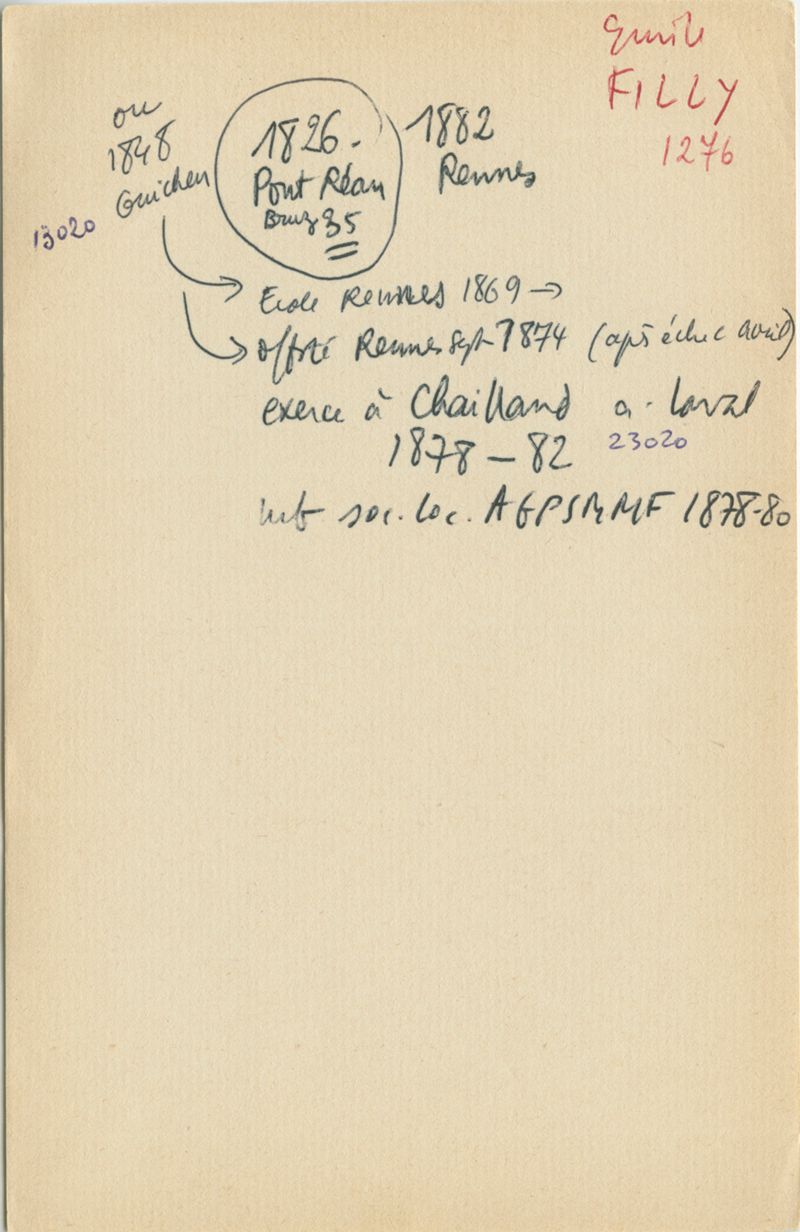 Emile
FILLY
1276
ou
1848
Guichen
13020
1826 -
Pont Réan
Bruz 35
1882
Rennes
Ecole Rennes 1869 →
Rennes Sept 1874 (aps échec avril)
exerce à Chailland a. Laval
1878 - 82 23020
soc. loc. AGPSMMF 1878-80